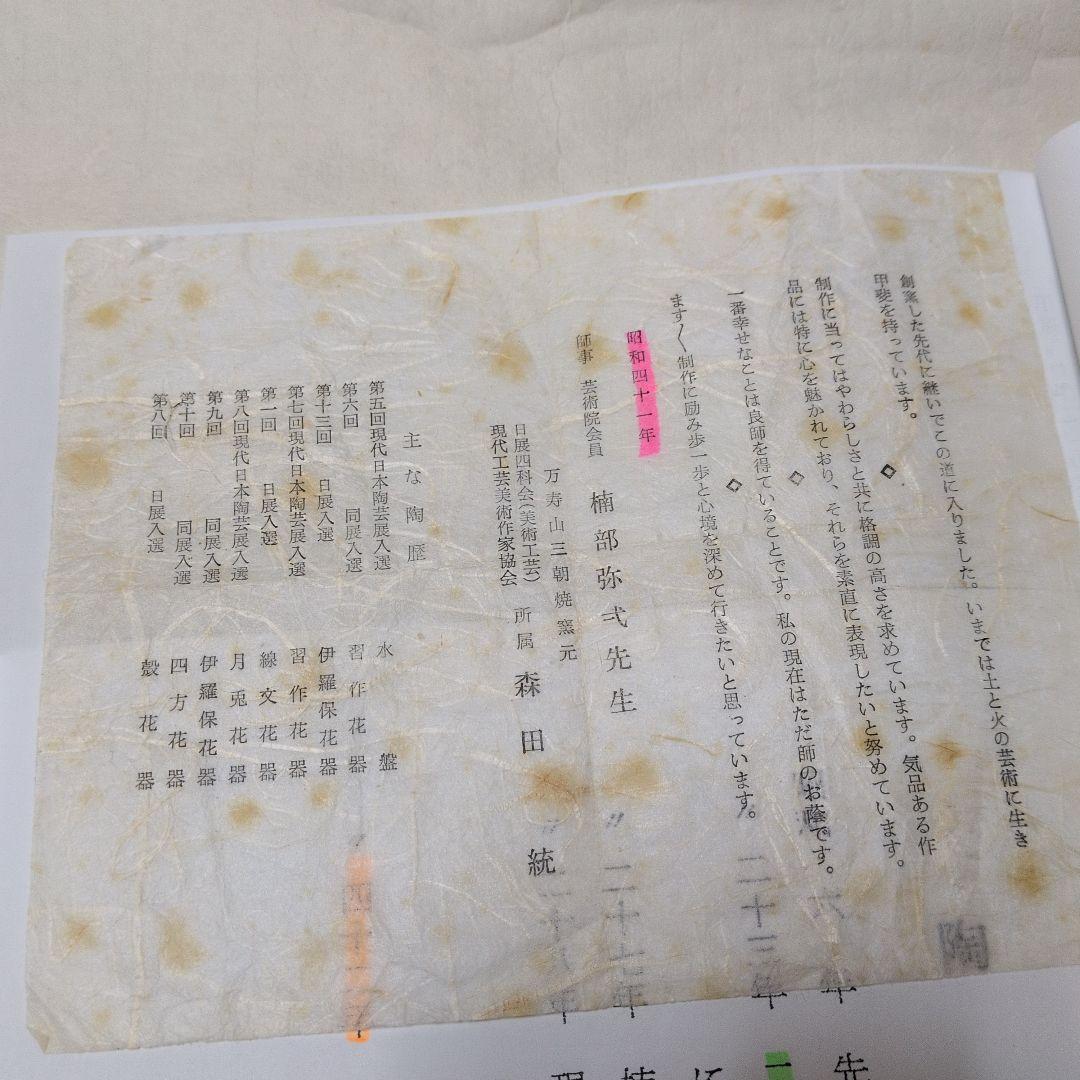 創業した先代に継いでこの道に入りました。いまでは土と火の芸術に生き
甲斐を持っています。
◇
制作に当ってはやわらしさと共に格調の高さを求めています。気品ある作
品には特に心を魅かれており、それらを素直に表現したいと努めています。
◇
一番幸せなことは良師を得ていることです。私の現在はただ師のお蔭です。
◇
ます〱制作に励み歩一歩と心境を深めて行きたいと思っています。
昭和四十一年
師事 芸術院会員 楠部弥弌先生
万寿山三朝焼窯元
日展四科会(美術工芸)
現代工芸美術作家協会 所属 森田 統
主な陶歴
第五回現代日本陶芸展入選 水盤
第六回 同展入選 習作花器
第十三回 日展入選 伊羅保花器
第七回現代日本陶芸展入選 習作花器
第一回 日展入選 線文花器
第八回現代日本陶芸展入選 月兎花器
第九回 同展入選 伊羅保花器
第十回 同展入選 四方花器
第八回 日展入選 殻花器
陶
六年
二十三年
〃 二十七年
先
一